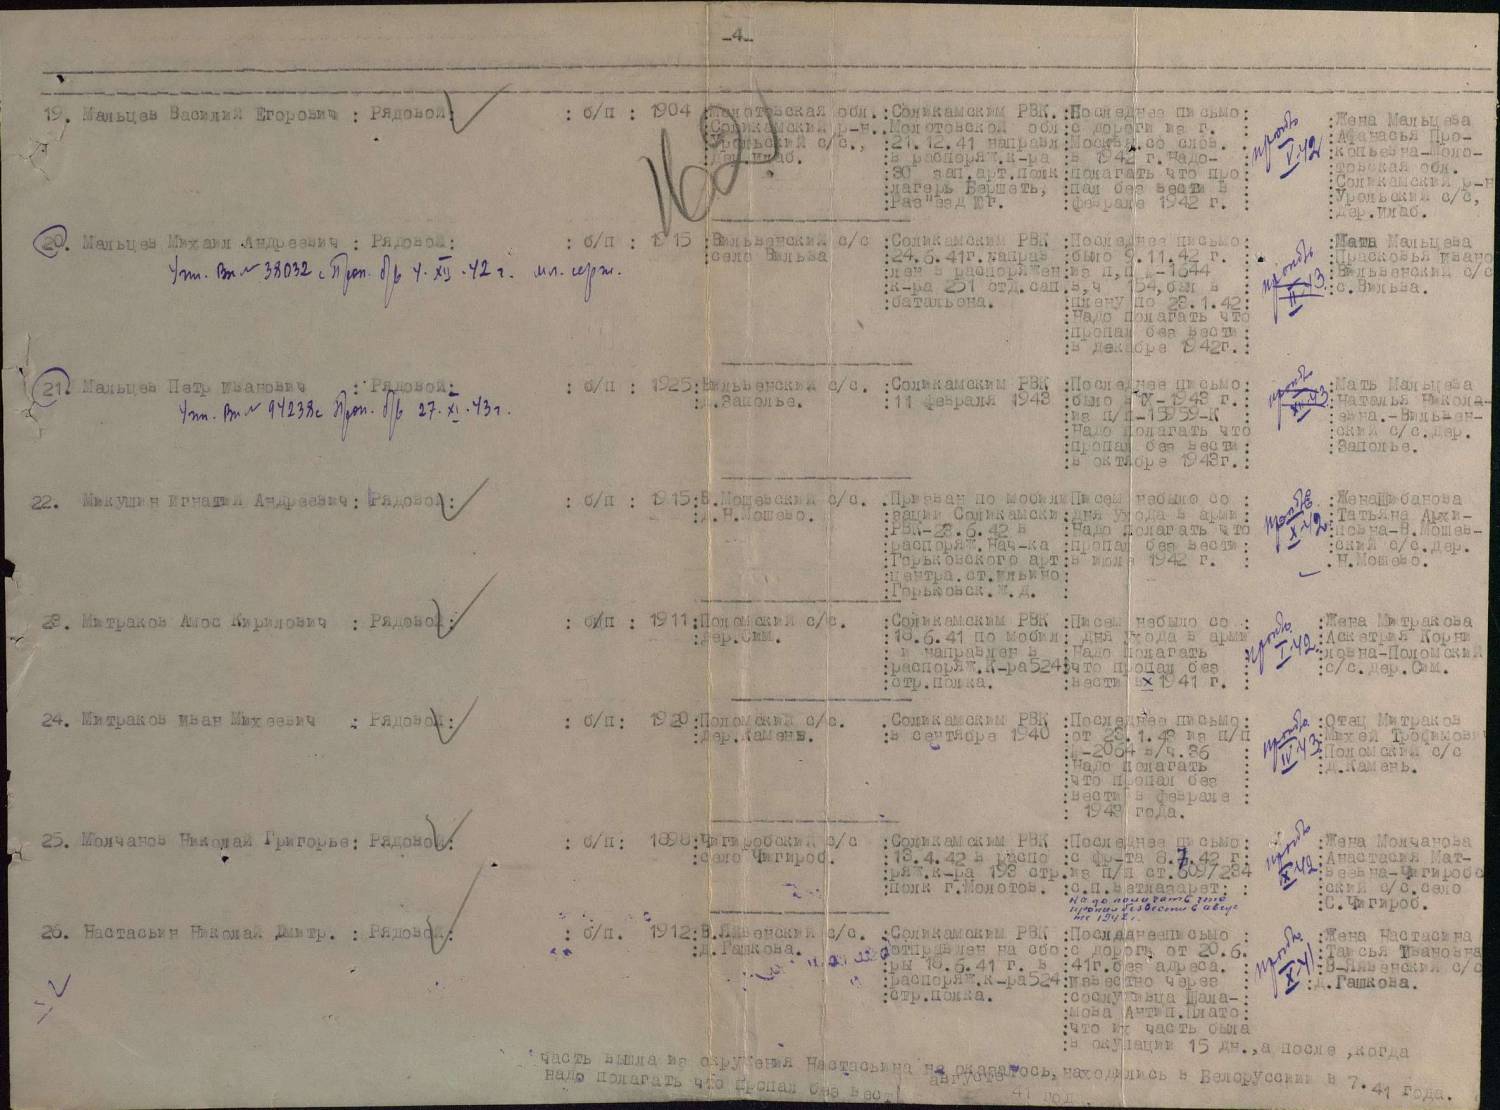 -4-
19. Мальцев Василий Егорович : Рядовой : б/п : 1904 : Молотовская обл. : Соликамским РВК. : Последнее письмо : Жена Мальцева
Соликамский р-н. : Молотовской обл : с дороги из г. : Афанасья Про-
Урольский с/с., : 21.12.41 направл : Москвы.со слов. : копьевна-Моло-
дер.Илаб. : в распоряж.к-ра : в 1942 г.Надо- : товская обл.
30 зап.арт.полк : полагать что про : Соликамский р-н
лагерь Бершеть, : пал без вести в : Урольский с/с,
Раз"езд Юг. : феврале 1942 г. : дер.Илаб.
пропбв V-42
162
20. Мальцев Михаил Андреевич : Рядовой : б/п : 1915 : Вильвенский с/с : Соликамским РВК : Последнее письмо : Мать Мальцева
село Вильва : 24.6.41г.направ : было 9.11.42 г. : Прасковья Ивано
лен в распоряжен : из п,п -1644 : Вильвенский с/с
к-ра 251 отд.сап : в,ч 154,был в : с.Вильва.
батальона. : плену по 23.1.42
Надо полагать что
пропал без вести
в декабре 1942г.
Утп. Вх№ 38032 с Проп. б/в 4.XII.42 г. мл. серж.
пропбв II.43
21. Мальцев Петр Иванович : Рядовой : б/п : 1925 : Вильвенский с/с. : Соликамским РВК : Последнее письмо : Мать Мальцева
д.Заполье. : 11 февраля 1943 : было IX-1943 г. : Наталья Никола-
из п/п-15959-К : евна.-Вильвен-
Надо полагать что : ский с/с.дер.
пропал без вести : Заполье.
в октябре 1943г.
Утп. Вх№ 94238с Проп. б/в 27.XI.43г.
пропбв XII-43
22. Микушин Игнатий Андреевич : Рядовой : б/п : 1915 : В.Мошевский с/с. : Призван по мобили : Писем небыло со : Жена Шибанова
д.Н.Мошево. : зации Соликамски : дня ухода в арми : Татьяна Архи-
РВК-23.6.42 в : Надо полагать что : повна-В.Мошев-
распоряж.Нач-ка : пропал без вести : ский с/с.дер.
Горьковского арт : в июле 1942 г. : Н.Мошево.
центра.ст.Ильино
Горьковск.ж.д.
пропбв X-42
23. Митраков Амос Кирилович : Рядовой : б/п : 1911 : Половский с/с. : Соликамским РВК : Писем небыло со : Жена Митракова
дер.Сим. : 18.6.41 по мобил : дня ухода в арми : Аскетрия Корни
и направлен в : Надо полагать : ловна-Половский
распоряж.К-ра524 : что пропал без : с/с.дер.Сим.
стр.полка. : вести в X 1941 г.
пропбв I-42
24. Митраков Иван Михеевич : Рядовой : б/п : 1920 : Половский с/с. : Соликамским РВК : Последнее письмо : Отец Митраков
дер.Камень. : в сентябре 1940 : от 23.1.43 из п/п : Михей Трофимович
-2064 в/ч.36 : Половский с/с
Надо полагать : д.Камень.
что пропал без
вести в феврале
1943 года.
пропбв IV-43
25. Молчанов Николай Григорье : Рядовой : б/п : 1898 : Чигиробский с/с : Соликамским РВК : Последнее письмо : Жена Молчанова
село Чигироб. : 13.4.42 в распо : с фр-та 8.7.42 г : Анастасия Мат-
ряж.к-ра 193 стр. : из п/п ст.6097/284 : веевна-Чигиробс
полк г.Молотов. : с.п.ветлазарет : ский с/с.село
Надо полагать что : С.Чигироб.
пропал без вести в авгус
те 1942 г.
пропбв X-42
26. Настасьин Николай Дмитр. : Рядовой : б/п. : 1912 : В.Яйвенский с/с. : Соликамским РВК : Последнееписьмо : Жена Настасина
д.Гашкова. : отправлен на сбо : с дороги от 20.6. : Таисья Ивановна
ры 18.6.41 г. в : 41г.без адреса. : В-Яйвенский с/с
распоряж.к-ра524 : известно через : д.Гашкова.
стр.полка. : сослуживца Шала-
мова Антип.Плато
что их часть была
в окупации 15 дн.,а после ,когда
часть вышла из окружения Настасьина не оказалось,находились в Белоруссиии в 7.41 года.
надо полагать что пропал без вест августе 41 год
пропбв X-41